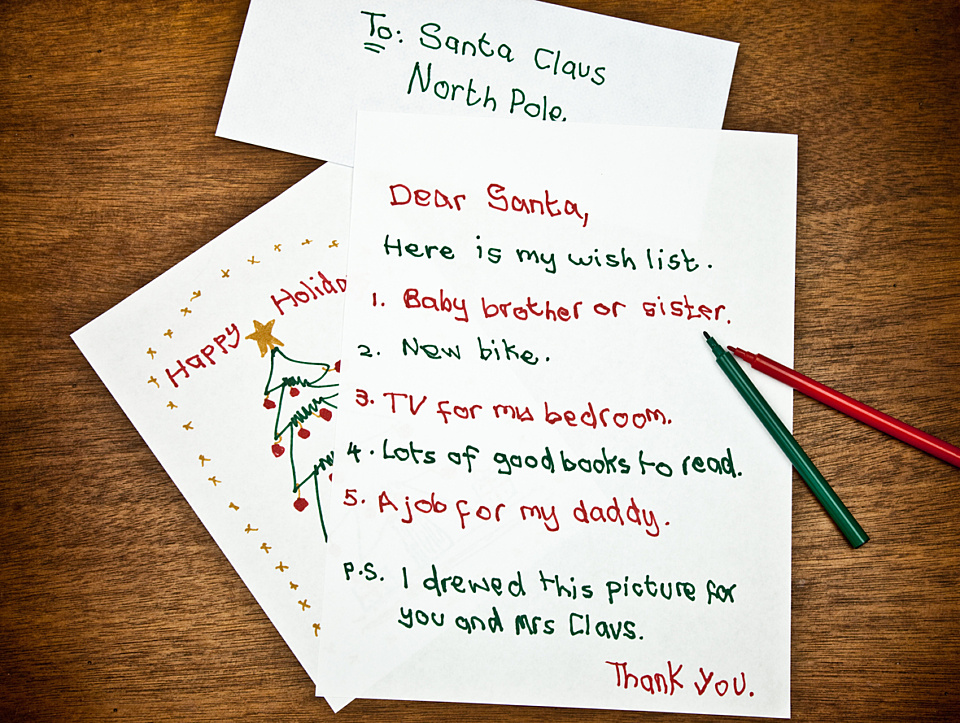 To: Santa Claus
North Pole.
Happy Holida
Dear Santa,
Here is my wish list.
1. Baby brother or sister.
2. New bike.
3. TV for my bedroom.
4. Lots of good books to read.
5. A job for my daddy.
P.S. I drewed this picture for
you and Mrs Claus.
Thank you.